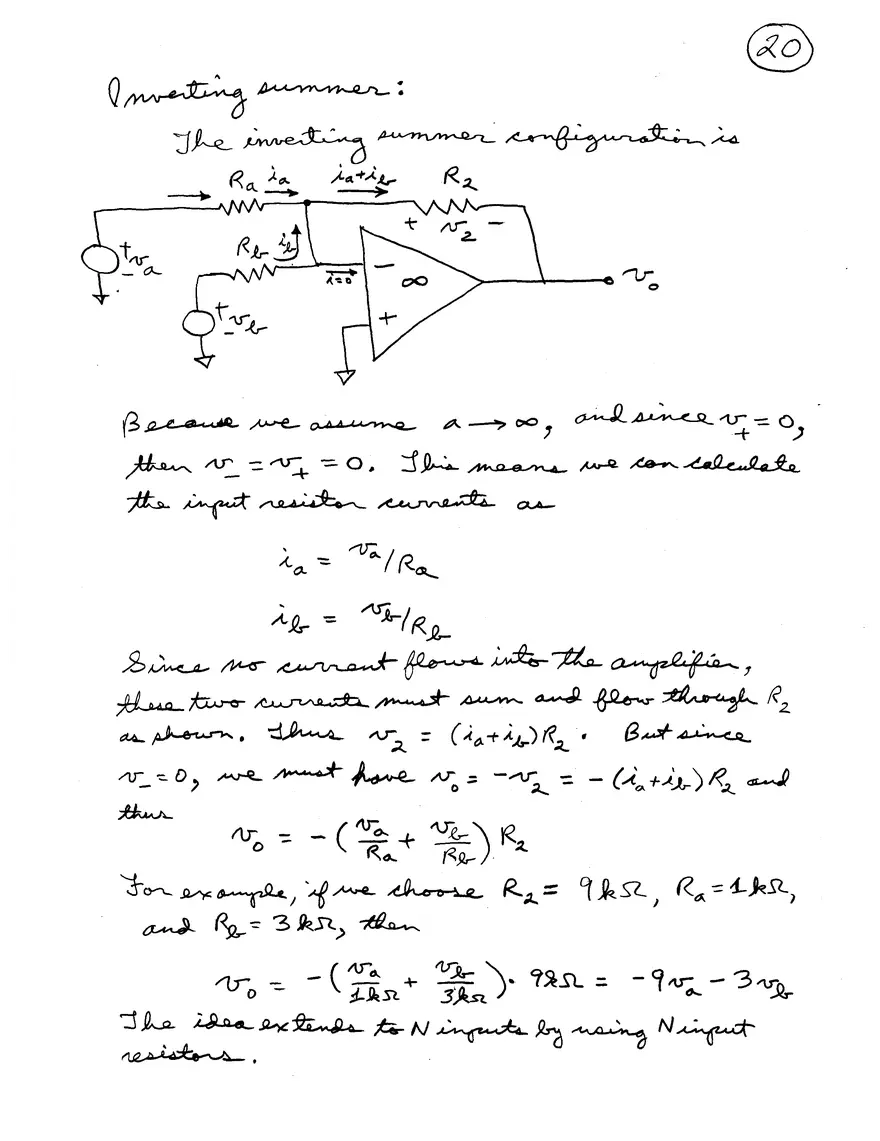 20
Inverting summer:
The inverting summer configuration is
Ra ia ia+ib R2
+ v2 −
+ va −
Rb ib
i=0
− ∞ +
vo
+ vb −
Because we assume a → ∞, and since v+ = 0,
then v− = v+ = 0. This means we can calculate
the input resistor currents as
ia = va/Ra
ib = vb/Rb
Since no current flows into the amplifier,
these two currents must sum and flow through R2
as shown. Thus v2 = (ia+ib)R2. But since
v−=0, we must have vo = −v2 = −(ia+ib)R2 and
thus
vo = −(va/Ra + vb/Rb) R2
For example, if we choose R2 = 9kΩ, Ra = 1kΩ,
and Rb = 3kΩ, then
vo = −(va/1kΩ + vb/3kΩ)· 9kΩ = −9va − 3vb
The idea extends to N inputs by using N input
resistors.